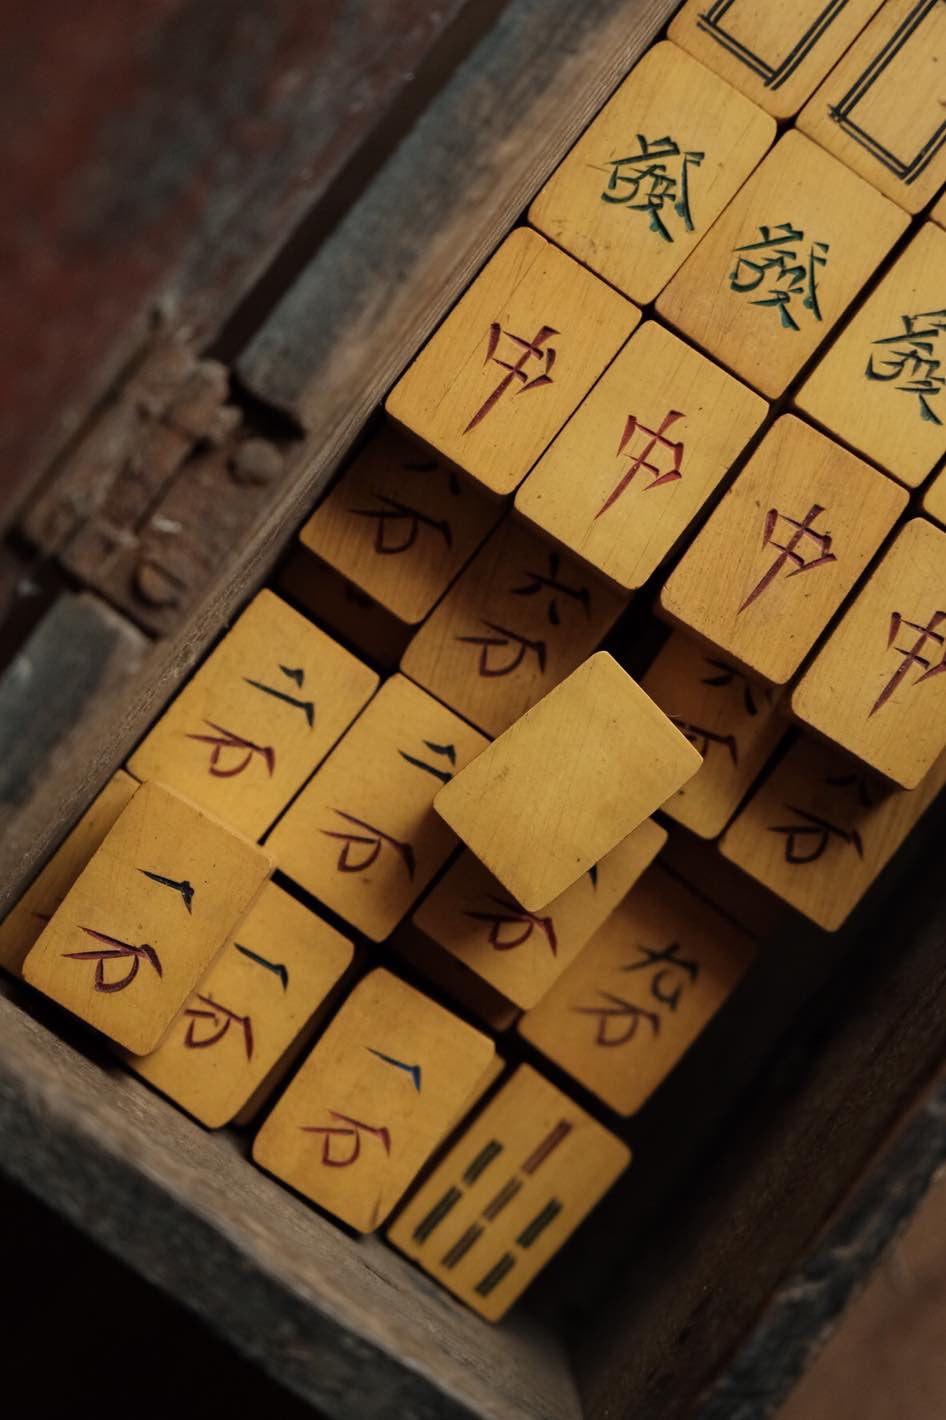 發
發
發
中
中
中
中
万
六万
六万
万
二万
二万
万
九万
一万
一万
一万